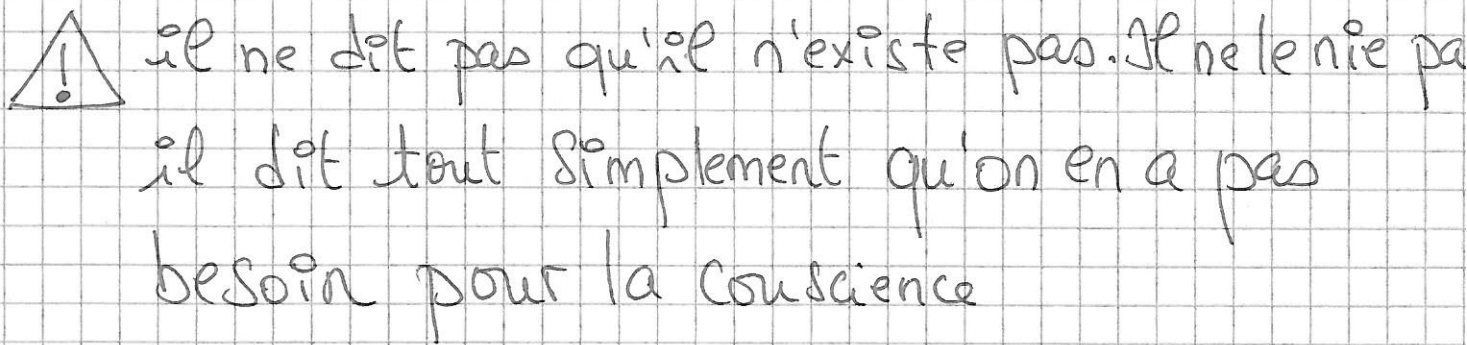 ! il ne dit pas qu'il n'existe pas. Il ne le nie pa
il dit tout simplement qu'on en a pas
besoin pour la conscience